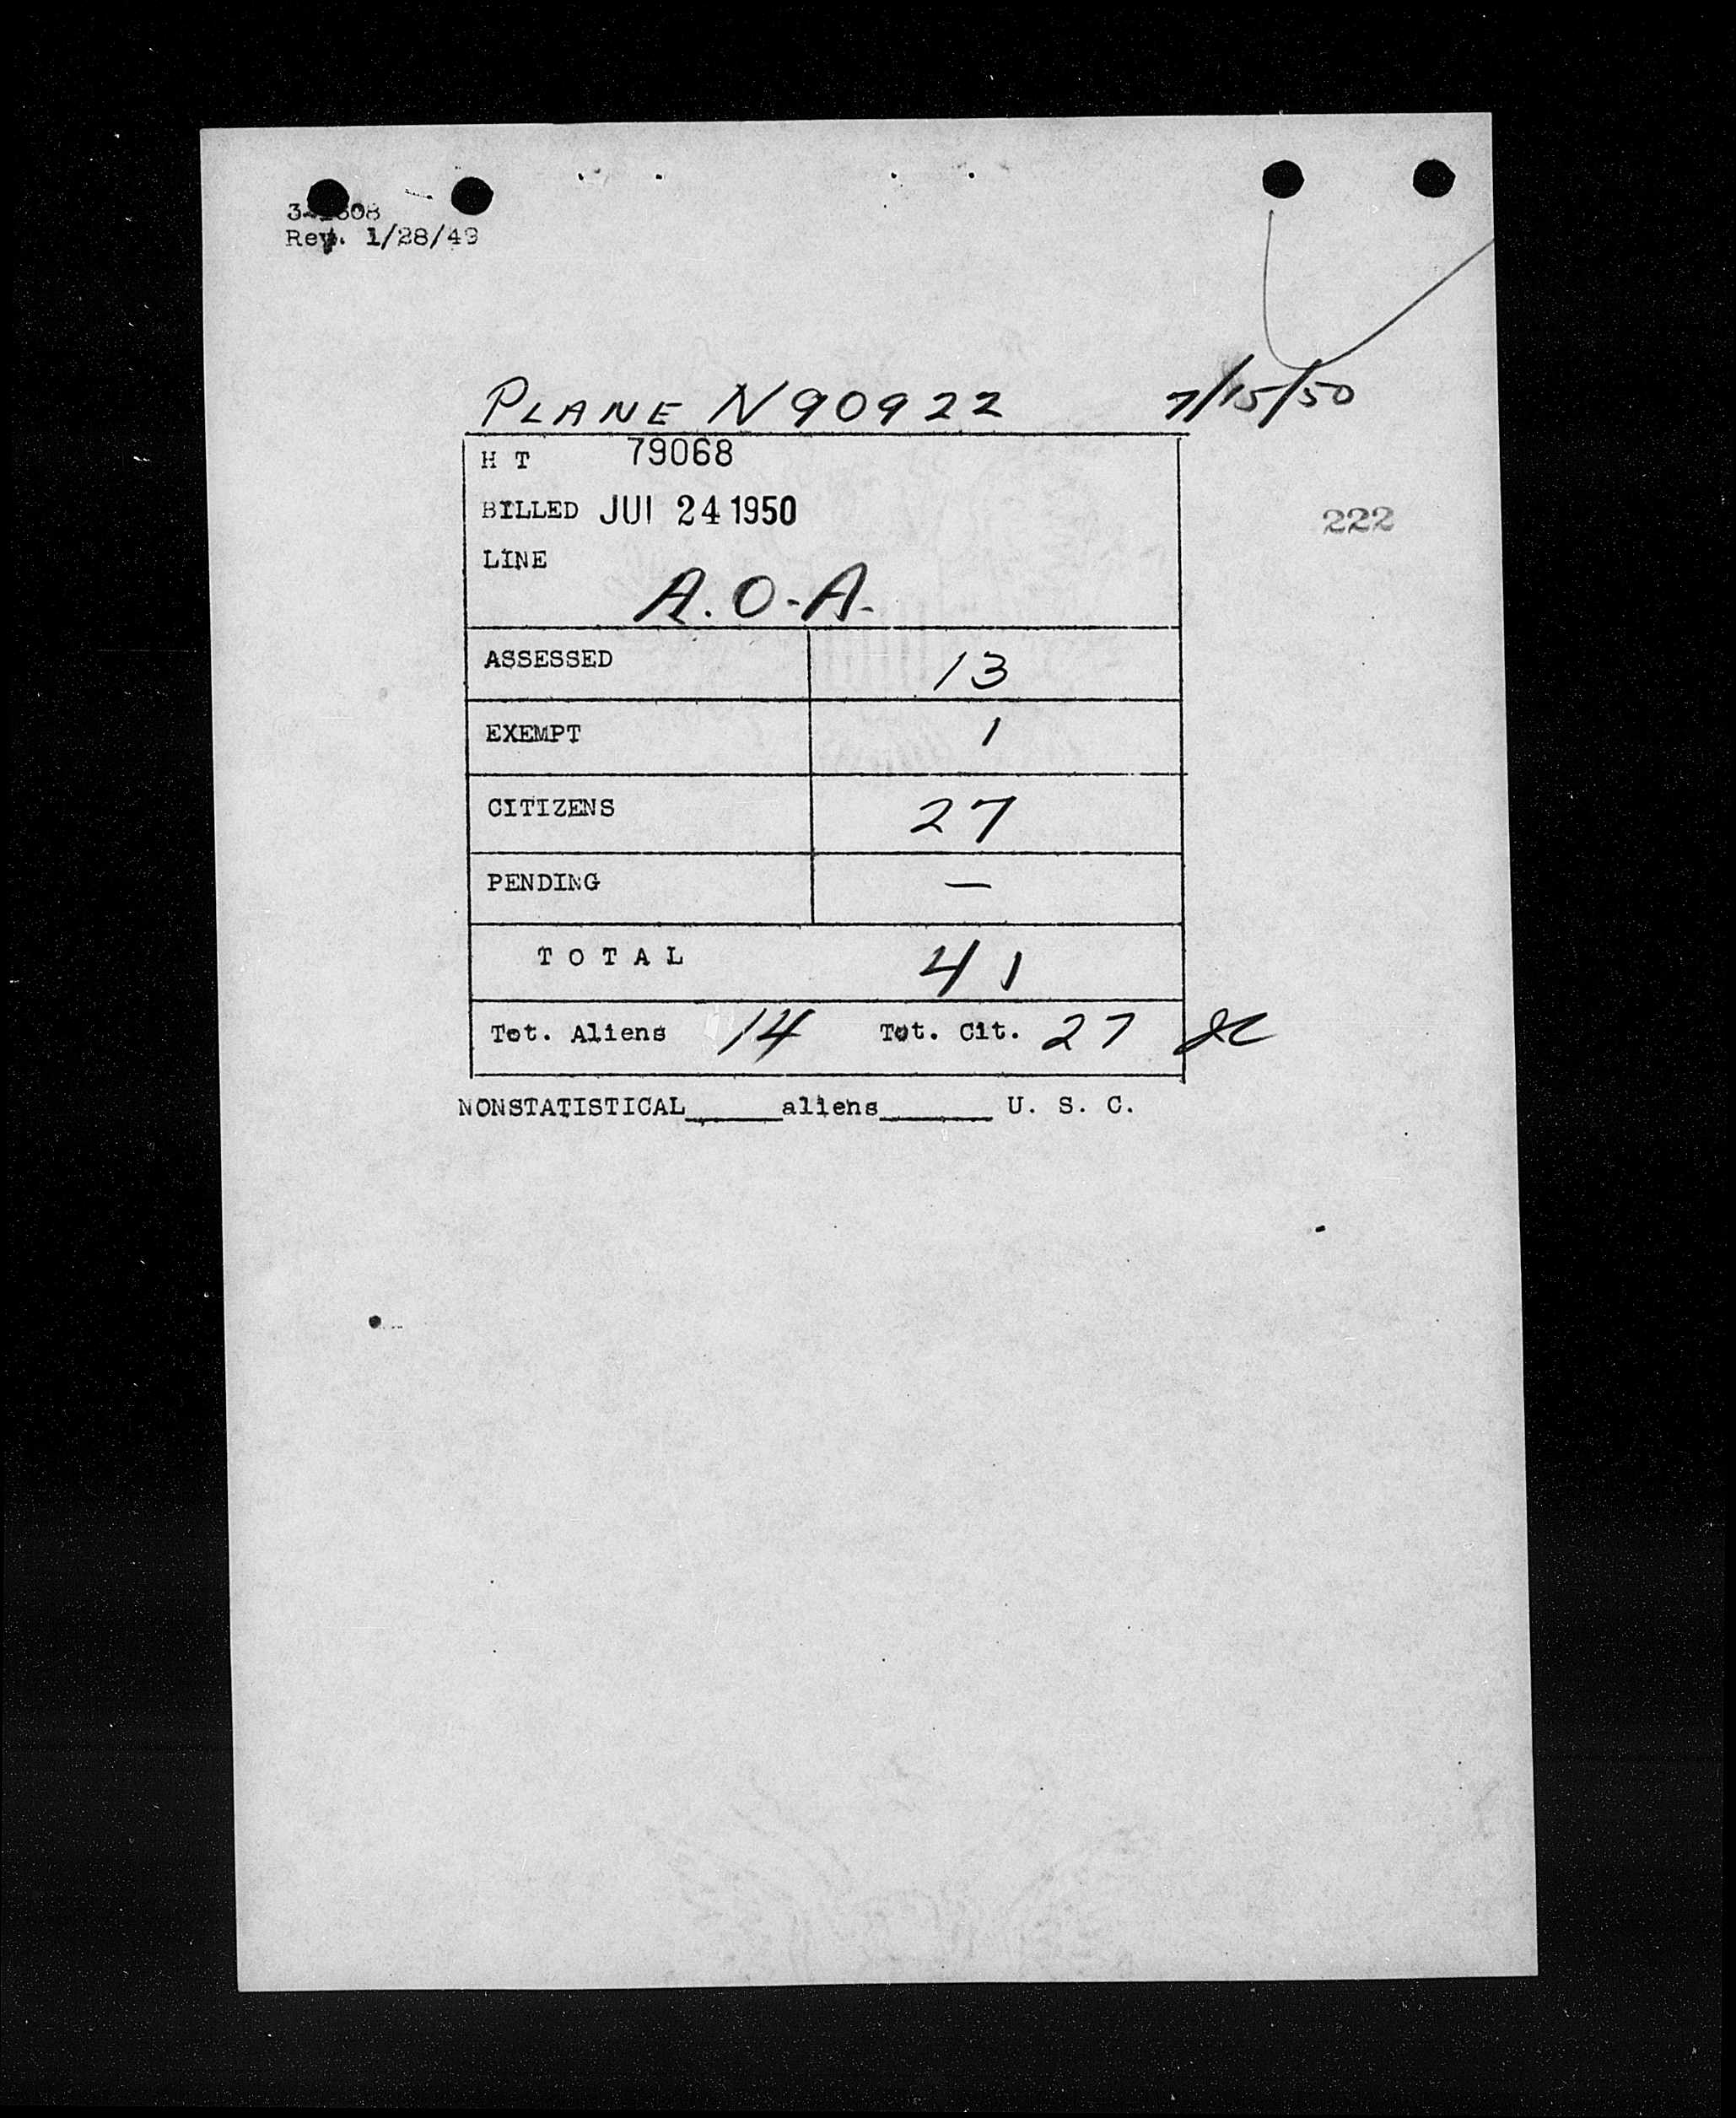 Rev. 1/28/49
PLANE N90922 7/15/50
H T 79068
BILLED JUL 24 1950
222
LINE
A.O.A.
ASSESSED 13
EXEMPT 1
CITIZENS 27
PENDING —
TOTAL 41
Tot. Aliens 14 Tot. Cit. 27
NONSTATISTICAL______aliens_______ U. S. C.